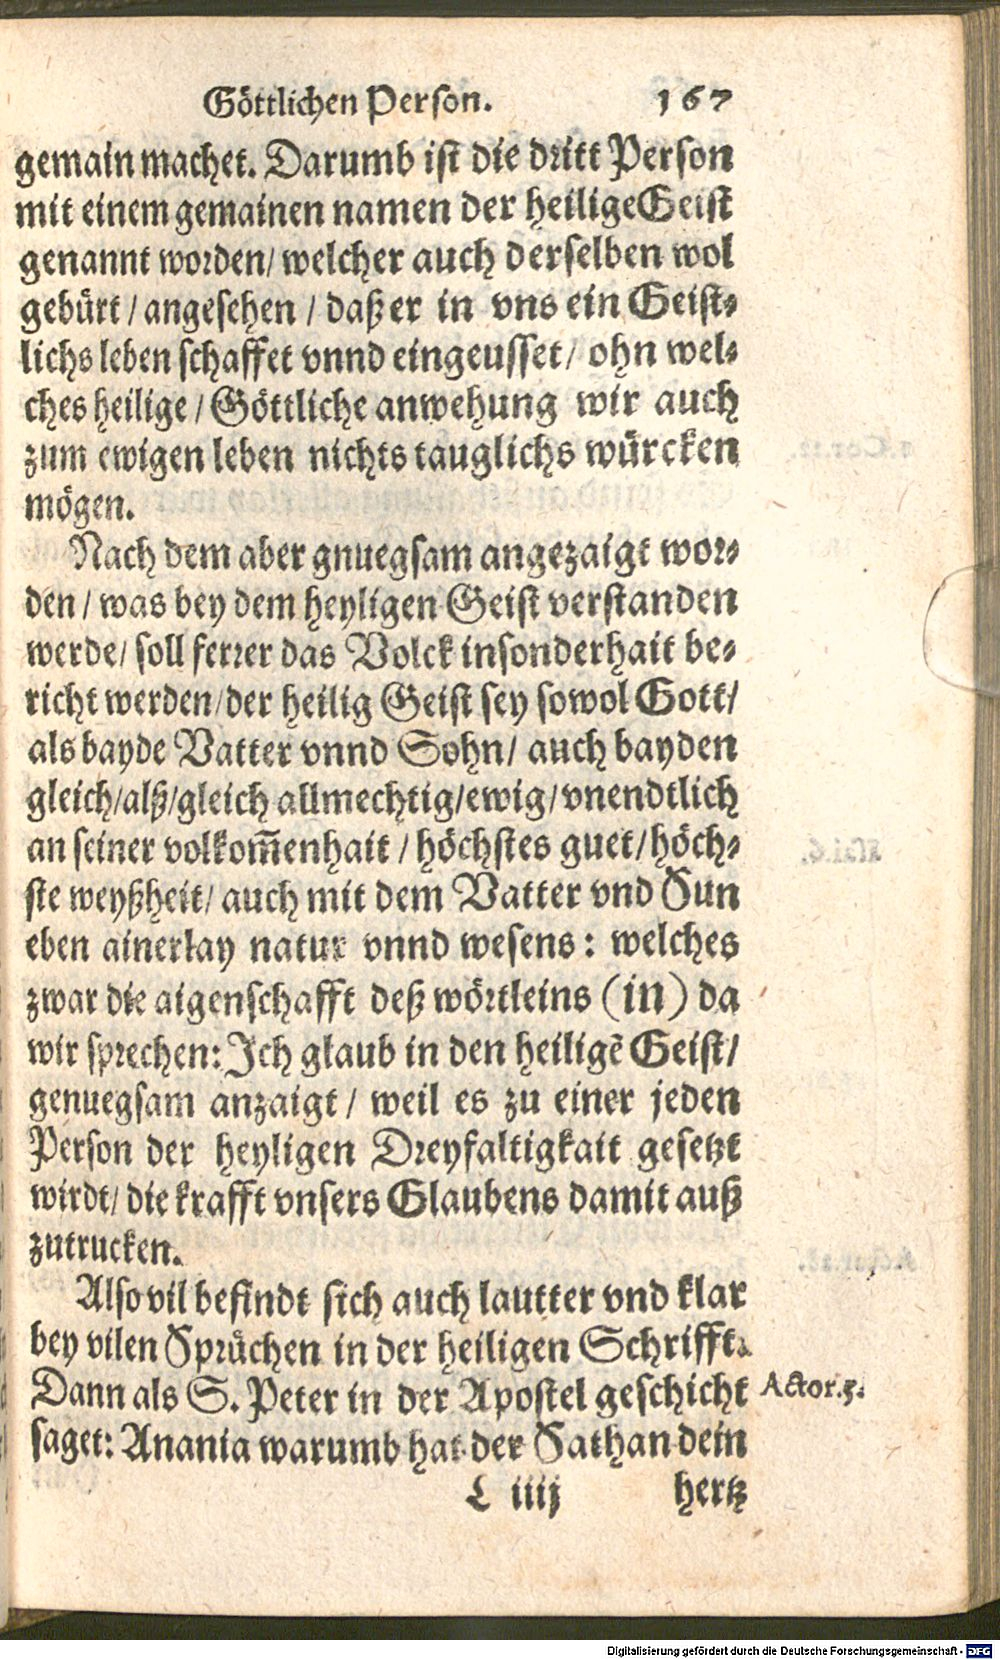 Göttlichen Person. 167
gemain machet. Darumb ist die dritt Person
mit einem gemainen namen der heilige Geist
genannt worden/ welcher auch derselben wol
gebürt / angesehen / daß er in vns ein Geist-
lichs leben schaffet vnnd eingeusset/ ohn wel-
ches heilige / Göttliche anwehung wir auch
zum ewigen leben nichts tauglichs würcken
mögen.
Nach dem aber gnuegsam angezaigt wor-
den / was bey dem heyligen Geist verstanden
werde/ soll ferrer das Volck insonderhait be-
richt werden/der heilig Geist sey sowol Gott/
als bayde Vatter vnnd Sohn/ auch bayden
gleich/alß/gleich allmechtig/ewig/vnendtlich
an seiner volkom̄enhait / höchstes guet/höch-
ste weyßheit/ auch mit dem Vatter vnd Sun
eben ainerlay natur vnnd wesens: welches
zwar die aigenschafft deß wörtleins (in) da
wir sprechen: Ich glaub in den heiligẽ Geist/
genuegsam anzaigt / weil es zu einer jeden
Person der heyligen Dreyfaltigkait gesetzt
wirdt/ die krafft vnsers Glaubens damit auß
zutrucken.
Also vil befindt sich auch lautter vnd klar
bey vilen Sprüchen in der heiligen Schrifft.
Dann als S. Peter in der Apostel geschicht Actor.5.
saget: Anania warumb hat der Sathan dein
L iiij hertz
Digitalisierung gefördert durch die Deutsche Forschungsgemeinschaft - DFG